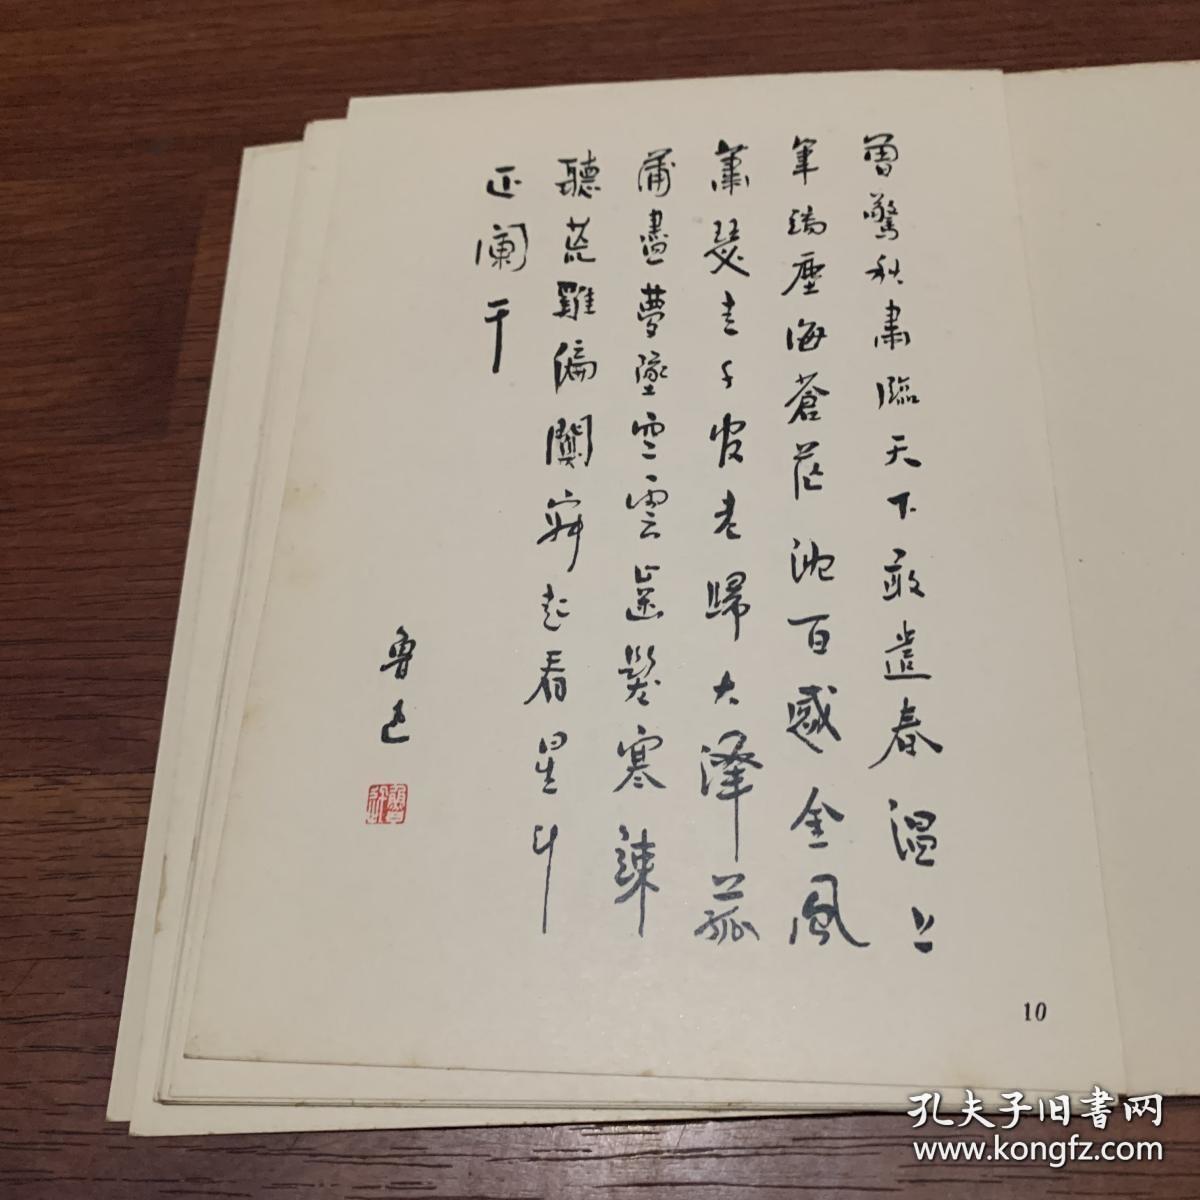 曾驚秋肅臨天下敢遣春温上
筆端塵海蒼茫沈百感金風
蕭瑟走千官老歸大澤菰
蒲盡夢墜空雲齒髮寒竦
聽荒雞偏闃寂起看星斗
正闌干
魯迅
10
孔夫子旧書网
www.kongfz.com